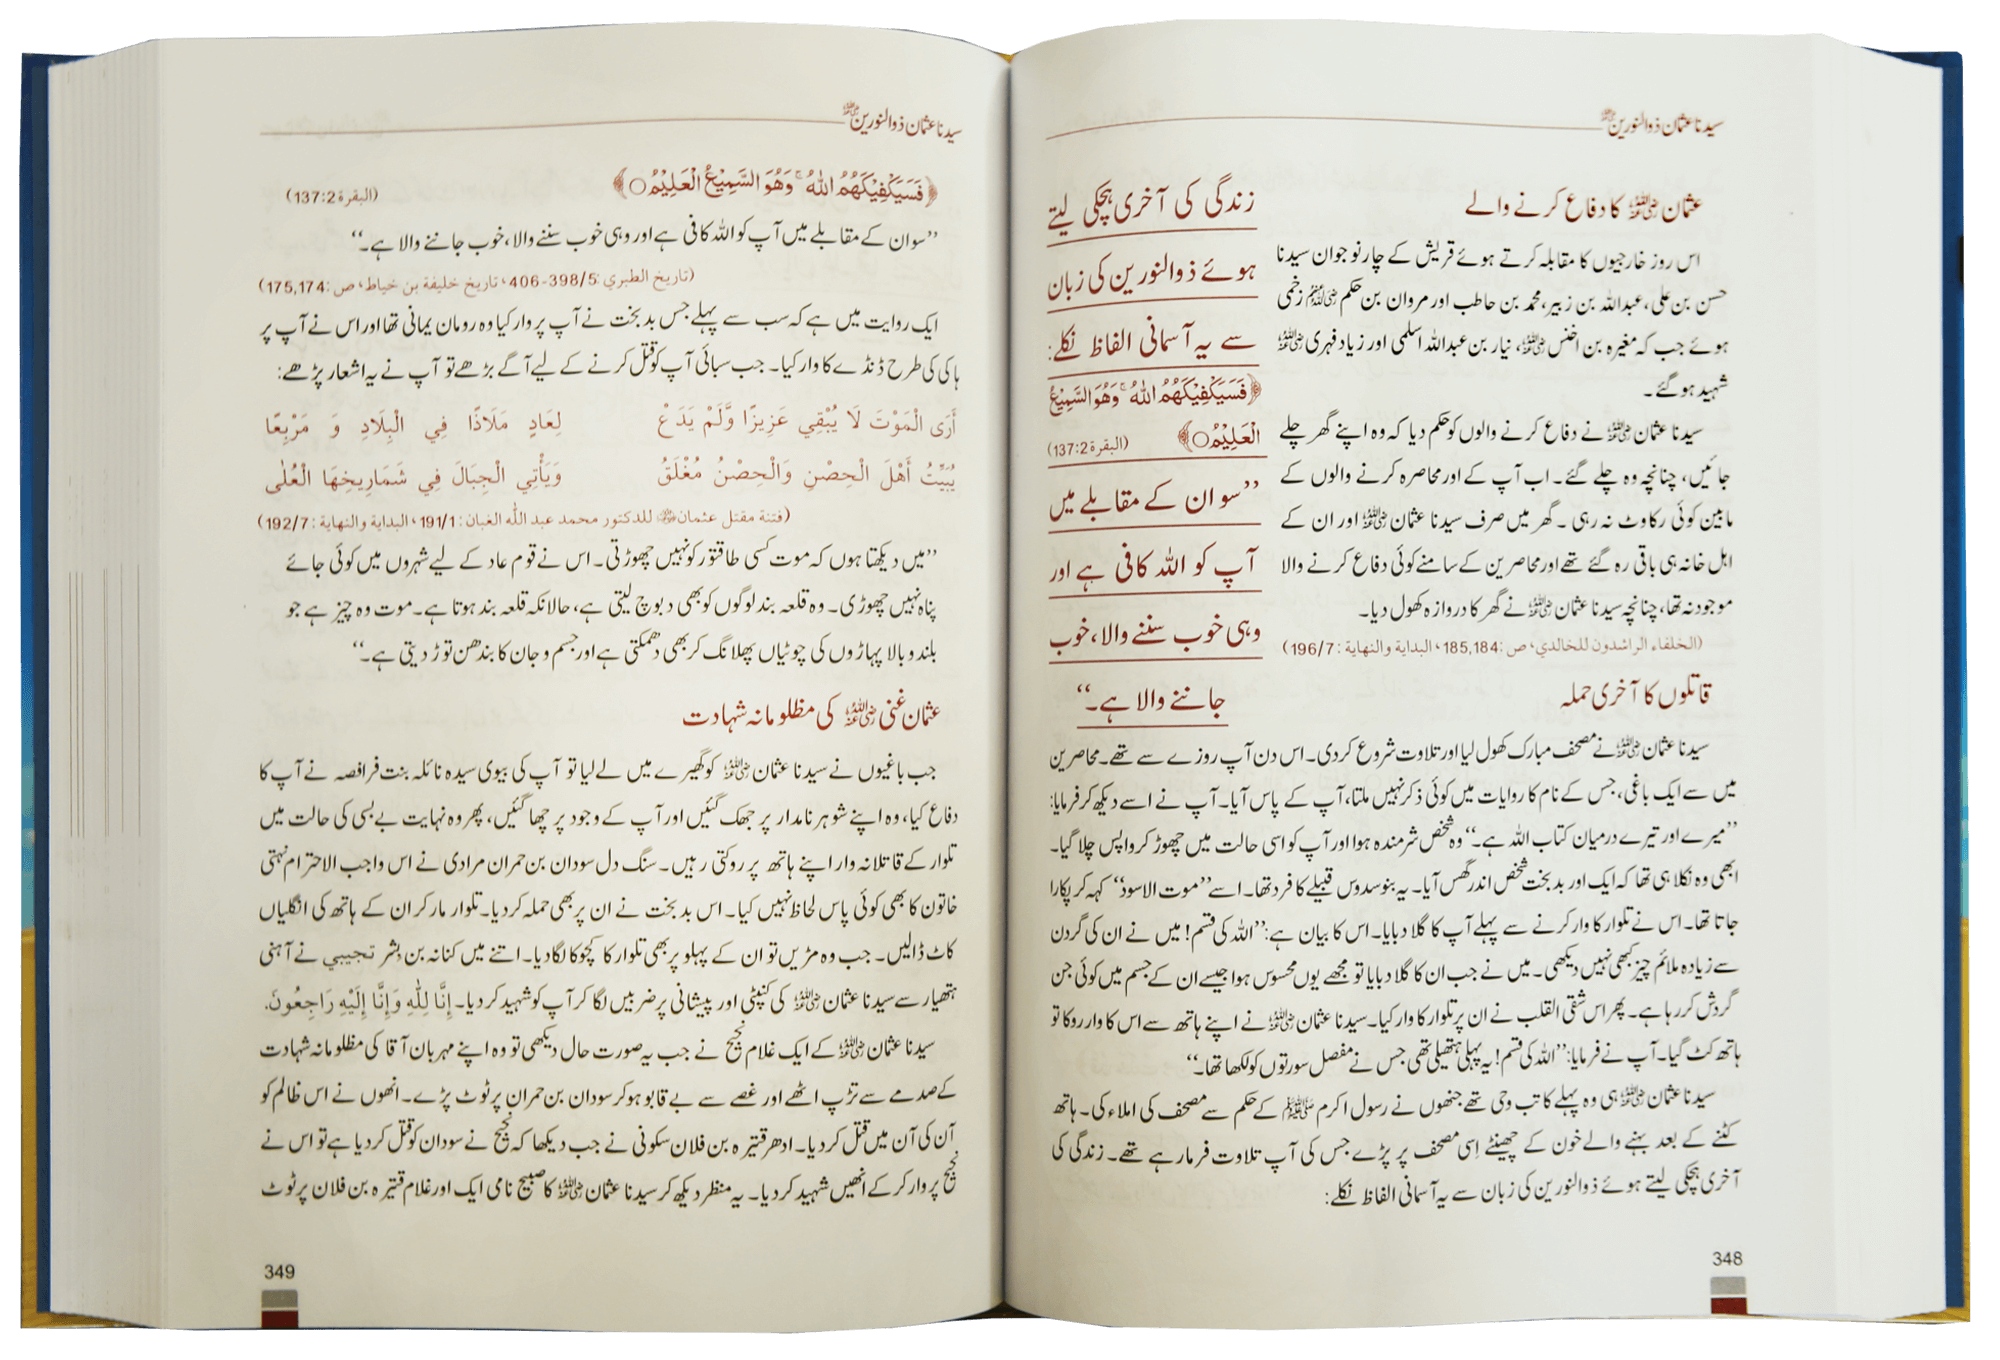 سیدنا عثمان ذوالنورین رضی اللہ عنہ
عثمان رضی اللہ عنہ کا دفاع کرنے والے
اس روز خارجیوں کا مقابلہ کرتے ہوئے قریش کے چار نوجوان سیدنا
حسن بن علی، عبداللہ بن زبیر، محمد بن حاطب اور مروان بن حکم رضی اللہ عنہم زخمی
ہوئے جب کہ مغیرہ بن اخنس رضی اللہ عنہ، نیار بن عبداللہ اسلمی اور زیاد فہری رضی اللہ عنہ
شہید ہو گئے۔
سیدنا عثمان رضی اللہ عنہ نے دفاع کرنے والوں کو حکم دیا کہ وہ اپنے گھر چلے
جائیں، چنانچہ وہ چلے گئے۔ اب آپ کے اور محاصرہ کرنے والوں کے
مابین کوئی رکاوٹ نہ رہی۔ گھر میں صرف سیدنا عثمان رضی اللہ عنہ اور ان کے
اہل خانہ ہی باقی رہ گئے تھے اور محاصرین کے سامنے کوئی دفاع کرنے والا
موجود نہ تھا، چنانچہ سیدنا عثمان رضی اللہ عنہ نے گھر کا دروازہ کھول دیا۔
(الخلفاء الراشدون للخالدي، ص: 185,184، البداية والنهاية: 196/7)
زندگی کی آخری ہچکی لیتے
ہوئے ذوالنورین کی زبان
سے یہ آسمانی الفاظ نکلے:
﴿فَسَيَكْفِيْكَهُمُ اللّٰهُ ۚ وَهُوَ السَّمِيْعُ
الْعَلِيْمُ○﴾ (البقرة 137:2)
”سو ان کے مقابلے میں
آپ کو اللہ کافی ہے اور
وہی خوب سننے والا، خوب
جاننے والا ہے۔“
قاتلوں کا آخری حملہ
سیدنا عثمان رضی اللہ عنہ نے مصحف مبارک کھول لیا اور تلاوت شروع کر دی۔ اس دن آپ روزے سے تھے۔ محاصرین
میں سے ایک باغی، جس کے نام کا روایات میں کوئی ذکر نہیں ملتا، آپ کے پاس آیا۔ آپ نے اسے دیکھ کر فرمایا:
”میرے اور تیرے درمیان کتاب اللہ ہے۔“ وہ شخص شرمندہ ہوا اور آپ کو اسی حالت میں چھوڑ کر واپس چلا گیا۔
ابھی وہ نکلا ہی تھا کہ ایک اور بدبخت شخص اندر گھس آیا۔ یہ بنو سدوس قبیلے کا فرد تھا۔ اسے ”موت الاسود“ کہہ کر پکارا
جاتا تھا۔ اس نے تلوار کا وار کرنے سے پہلے آپ کا گلا دبایا۔ اس کا بیان ہے: ”اللہ کی قسم! میں نے ان کی گردن
سے زیادہ ملائم چیز کبھی نہیں دیکھی۔ میں نے جب ان کا گلا دبایا تو مجھے یوں محسوس ہوا جیسے ان کے جسم میں کوئی جن
گردش کر رہا ہے۔ پھر اس شقی القلب نے ان پر تلوار کا وار کیا۔ سیدنا عثمان رضی اللہ عنہ نے اپنے ہاتھ سے اس کا وار روکا تو
ہاتھ کٹ گیا۔ آپ نے فرمایا: ”اللہ کی قسم! یہ پہلی ہتھیلی تھی جس نے مفصل سورتوں کو لکھا تھا۔“
سیدنا عثمان رضی اللہ عنہ ہی وہ پہلے کاتب وحی تھے جنھوں نے رسول اکرم ﷺ کے حکم سے مصحف کی املاء کی۔ ہاتھ
کٹنے کے بعد بہنے والے خون کے چھینٹے اِسی مصحف پر پڑے جس کی آپ تلاوت فرما رہے تھے۔ زندگی کی
آخری ہچکی لیتے ہوئے ذوالنورین کی زبان سے یہ آسمانی الفاظ نکلے:
348
سیدنا عثمان ذوالنورین رضی اللہ عنہ
﴿فَسَيَكْفِيْكَهُمُ اللّٰهُ ۚ وَهُوَ السَّمِيْعُ الْعَلِيْمُ○﴾ (البقرة 137:2)
”سو ان کے مقابلے میں آپ کو اللہ کافی ہے اور وہی خوب سننے والا، خوب جاننے والا ہے۔“
(تاريخ الطبري: 398/5-406، تاريخ خليفة بن خياط، ص: 175,174)
ایک روایت میں ہے کہ سب سے پہلے جس بدبخت نے آپ پر وار کیا وہ رومان یمانی تھا اور اس نے آپ پر
ہاکی کی طرح ڈنڈے کا وار کیا۔ جب سبائی آپ کو قتل کرنے کے لیے آگے بڑھے تو آپ نے یہ اشعار پڑھے:
أَرَى الْمَوْتَ لَا يُبْقِي عَزِيزًا وَّلَمْ يَدَعْ لِعَادٍ مَلَاذًا فِي الْبِلَادِ وَ مَرْبِعًا
يُبَيِّتُ أَهْلَ الْحِصْنِ وَالْحِصْنُ مُغْلَقٌ وَيَأْتِي الْجِبَالَ فِي شَمَارِيخِهَا الْعُلٰى
(فتنة مقتل عثمان رضی اللہ عنہ للدكتور محمد عبد الله الغبان: 191/1، البداية والنهاية: 192/7)
”میں دیکھتا ہوں کہ موت کسی طاقتور کو نہیں چھوڑتی۔ اس نے قوم عاد کے لیے شہروں میں کوئی جائے
پناہ نہیں چھوڑی۔ وہ قلعہ بند لوگوں کو بھی دبوچ لیتی ہے، حالانکہ قلعہ بند ہوتا ہے۔ موت وہ چیز ہے جو
بلند و بالا پہاڑوں کی چوٹیاں پھلانگ کر بھی آ دھمکتی ہے اور جسم و جان کا بندھن توڑ دیتی ہے۔“
عثمان غنی رضی اللہ عنہ کی مظلومانہ شہادت
جب باغیوں نے سیدنا عثمان رضی اللہ عنہ کو گھیرے میں لے لیا تو آپ کی بیوی سیدہ نائلہ بنت فرافصہ نے آپ کا
دفاع کیا، وہ اپنے شوہر نامدار پر جھک گئیں اور آپ کے وجود پر چھا گئیں، پھر وہ نہایت بے بسی کی حالت میں
تلوار کے قاتلانہ وار اپنے ہاتھ پر روکتی رہیں۔ سنگ دل سودان بن حمران مرادی نے اس واجب الاحترام نہتی
خاتون کا بھی کوئی پاس لحاظ نہیں کیا۔ اس بدبخت نے ان پر بھی حملہ کر دیا۔ تلوار مار کر ان کے ہاتھ کی انگلیاں
کاٹ ڈالیں۔ جب وہ مڑیں تو ان کے پہلو پر بھی تلوار کا کچوکا لگا دیا۔ اتنے میں کنانہ بن بشر تجیبي نے آہنی
ہتھیار سے سیدنا عثمان رضی اللہ عنہ کی کنپٹی اور پیشانی پر ضربیں لگا کر آپ کو شہید کر دیا۔ إِنَّا لِلّٰهِ وَإِنَّا إِلَيْهِ رَاجِعُونَ.
سیدنا عثمان رضی اللہ عنہ کے ایک غلام نجیح نے جب یہ صورت حال دیکھی تو وہ اپنے مہربان آقا کی مظلومانہ شہادت
کے صدمے سے تڑپ اٹھے اور غصے سے بے قابو ہو کر سودان بن حمران پر ٹوٹ پڑے۔ انھوں نے اس ظالم کو
آن کی آن میں قتل کر دیا۔ ادھر قتیرہ بن فلان سکونی نے جب دیکھا کہ نجیح نے سودان کو قتل کر دیا ہے تو اس نے
نجیح پر وار کر کے انھیں شہید کر دیا۔ یہ منظر دیکھ کر سیدنا عثمان رضی اللہ عنہ کا صبیح نامی ایک اور غلام قتیرہ بن فلان پر ٹوٹ
349